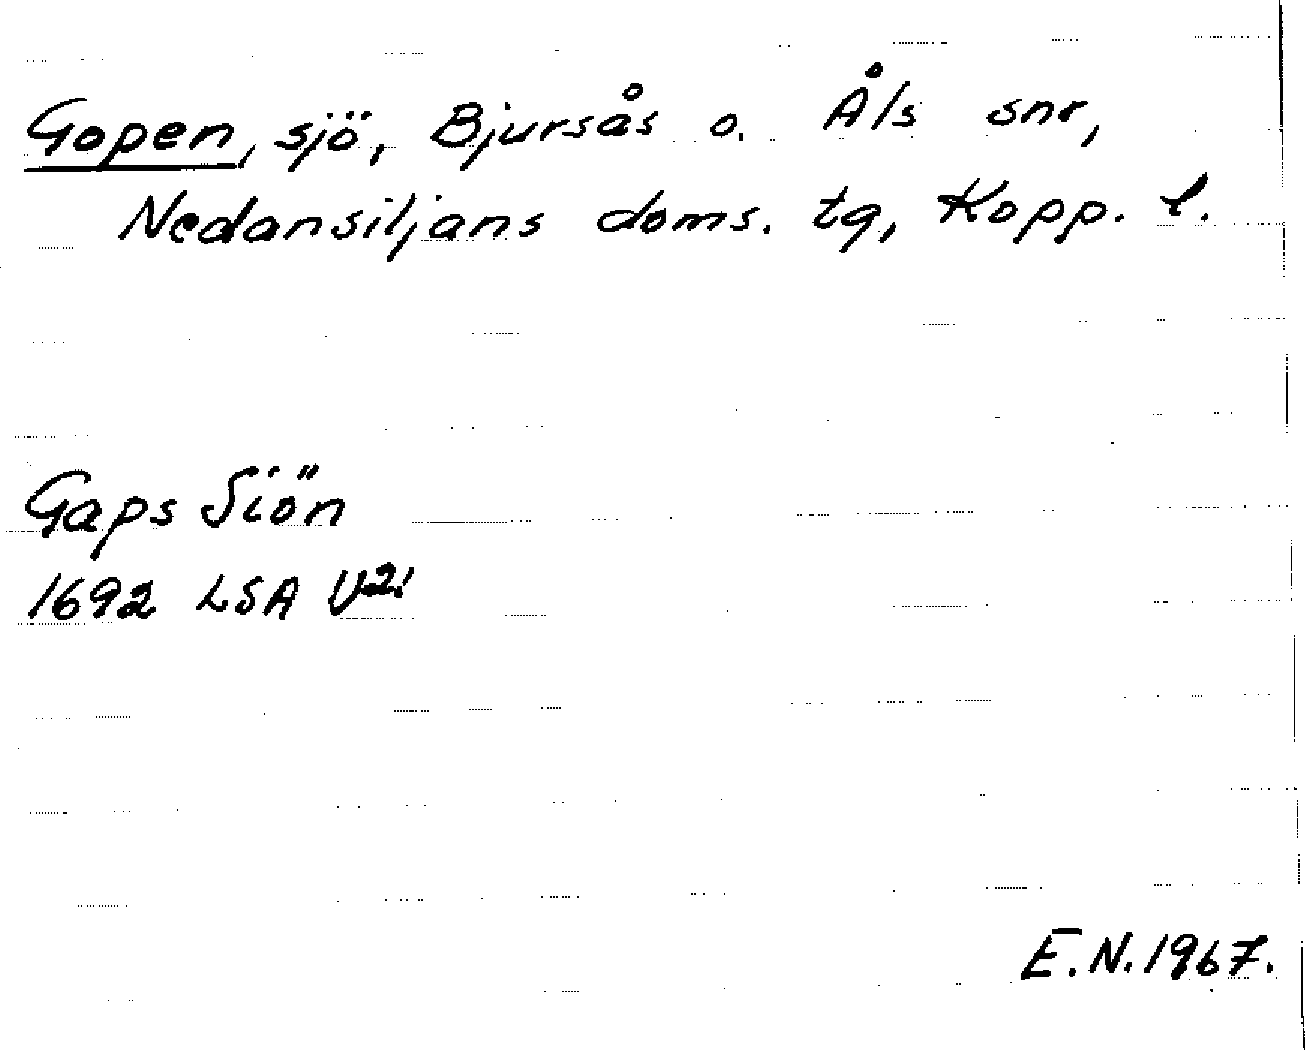 Gopen, sjö, Bjursås o. Åls snr,
Nedansiljans doms. tg, Kopp. l.
Gaps Siön
1692 LSA V2:
E.N. 1967.